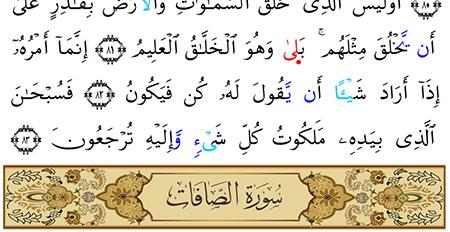 ٨٠ أَوَلَيْسَ الَّذِى خَلَقَ السَّمَٰوَٰتِ وَالْأَرْضَ بِقَٰدِرٍ عَلَىٰٓ
أَن يَّخْلُقَ مِثْلَهُم ۚ بَلِىٰ وَهُوَ الْخَلَّٰقُ الْعَلِيمُ ٨١ إِنَّمَآ أَمْرُهُۥٓ
إِذَآ أَرَادَ شَيْـًٔا أَن يَّقُولَ لَهُۥ كُن فَيَكُونُ ٨٢ فَسُبْحَٰنَ
الَّذِى بِيَدِهِۦ مَلَكُوتُ كُلِّ شَىْءٍ وَّإِلَيْهِ تُرْجَعُونَ ٨٣
سُورَةُ الصَّافَّاتِ